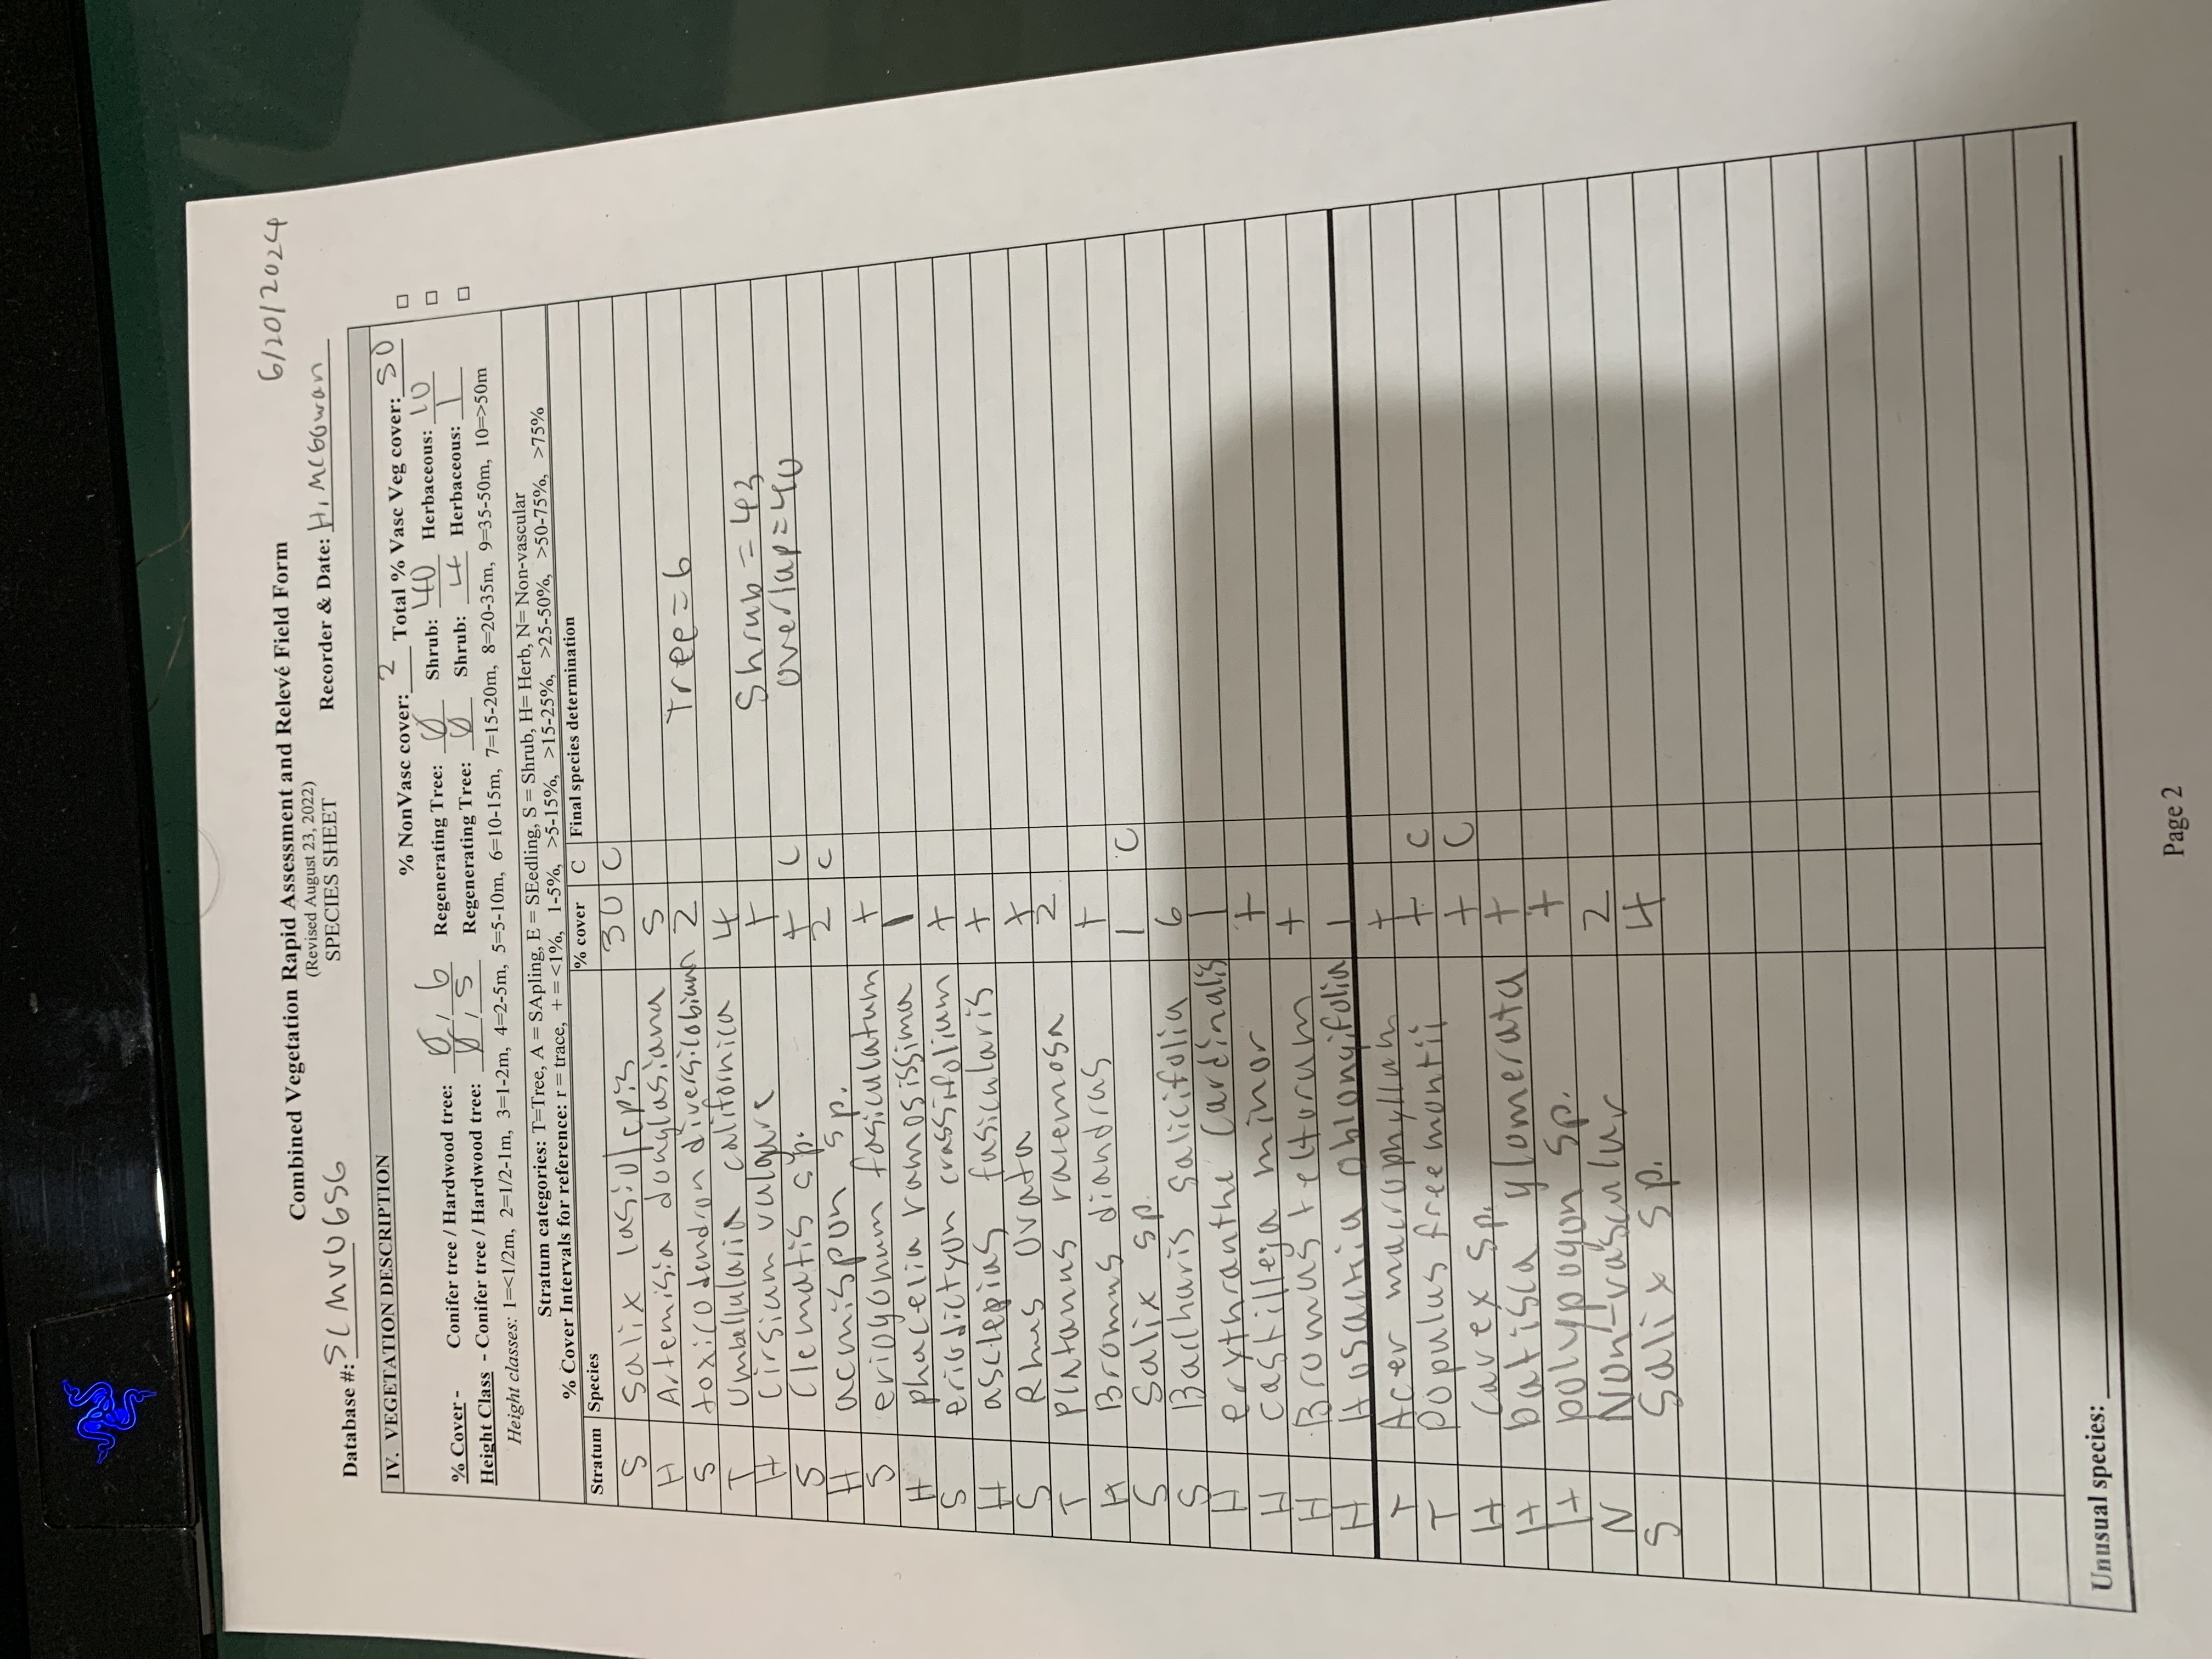 6/20/2024
Combined Vegetation Rapid Assessment and Relevé Field Form
(Revised August 23, 2022)
SPECIES SHEET
Database #: SCMV0656 Recorder & Date: H. McGowan
IV. VEGETATION DESCRIPTION
% NonVasc cover: 2 Total % Vasc Veg cover: 50
% Cover - Conifer tree / Hardwood tree: 0 / 6 Regenerating Tree: 0 Shrub: 40 Herbaceous: 10
Height Class - Conifer tree / Hardwood tree: 0 / 5 Regenerating Tree: 0 Shrub: 4 Herbaceous: 1
Height classes: 1=<1/2m, 2=1/2-1m, 3=1-2m, 4=2-5m, 5=5-10m, 6=10-15m, 7=15-20m, 8=20-35m, 9=35-50m, 10=>50m
Stratum categories: T=Tree, A = SApling, E = SEedling, S = Shrub, H= Herb, N= Non-vascular
% Cover Intervals for reference: r = trace, + = <1%, 1-5%, >5-15%, >15-25%, >25-50%, >50-75%, >75%
Stratum Species % cover C Final species determination
S Salix lasiolepis 30 C
H Artemisia douglasiana 5
S toxicodendron diversilobium 2 Tree=6
T Umbellularia californica 4
H Cirsium vulgare + Shrub = 43
S Clematis sp. + C overlap=40
H acmispon sp. 2 C
S eriogonum fasiculatum +
H phacelia ramosissima 1
S eriodictyon crassifolium +
H asclepias fasicularis +
S Rhus ovata +
T platanus racemosa 2
H Bromus diandrus +
S Salix sp. 1 C
S Baccharis salicifolia 6
H erythranthe cardinalis 1
H castilleja minor +
H Bromus tectorum +
H Hosackia oblongifolia 1
T Acer macrophyllum +
T populus freemontii + C
H carex sp. + C
H Datisca glomerata +
H polypogon sp. +
N Non-vascular 2
S Salix sp. 4
Unusual species:
Page 2